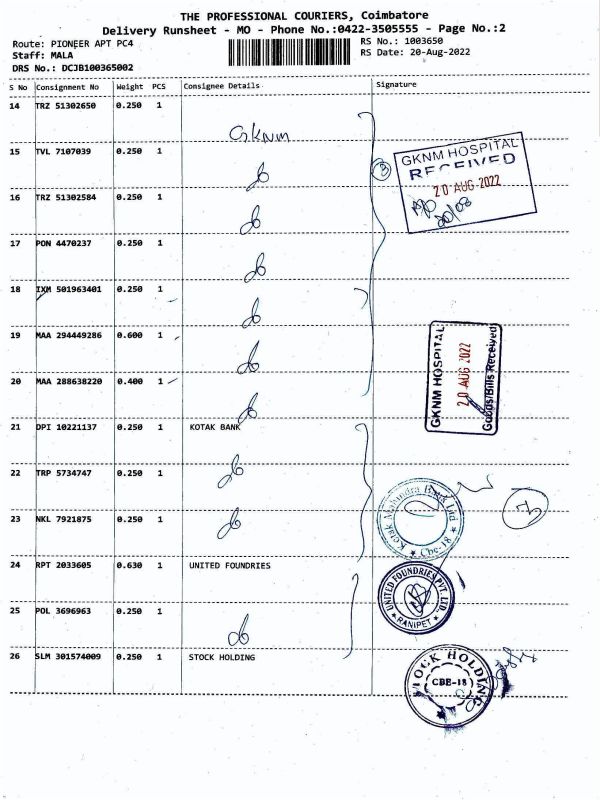 THE PROFESSIONAL COURIERS, Coimbatore
Delivery Runsheet - MO - Phone No.:0422-3505555 - Page No.:2
Route: PIONEER APT PC4
Staff: MALA
DRS No.: DCJB100365002
RS No.: 1003650
RS Date: 20-Aug-2022
S No Consignment No Weight PCS Consignee Details Signature
14 TRZ 51302650 0.250 1 GKNM
15 TVL 7107039 0.250 1 do
16 TRZ 51302584 0.250 1 do
17 PON 4470237 0.250 1 do
18 IXM 501963401 0.250 1 do
19 MAA 294449286 0.600 1 do
20 MAA 288638220 0.400 1 do
21 DPI 10221137 0.250 1 KOTAK BANK
22 TRP 5734747 0.250 1 do
23 NKL 7921875 0.250 1 do
24 RPT 2033605 0.630 1 UNITED FOUNDRIES
25 POL 3696963 0.250 1 do
26 SLM 301574009 0.250 1 STOCK HOLDING
GKNM HOSPITAL
RECEIVED
20 AUG 2022
20/08
GKNM HOSPITAL
20 AUG 2022
Goods/Bills Received
Kotak Mahindra Bank Ltd
Cbe-18
UNITED FOUNDRIES PVT. LTD.
RANIPET
STOCK HOLDING
CBE-18